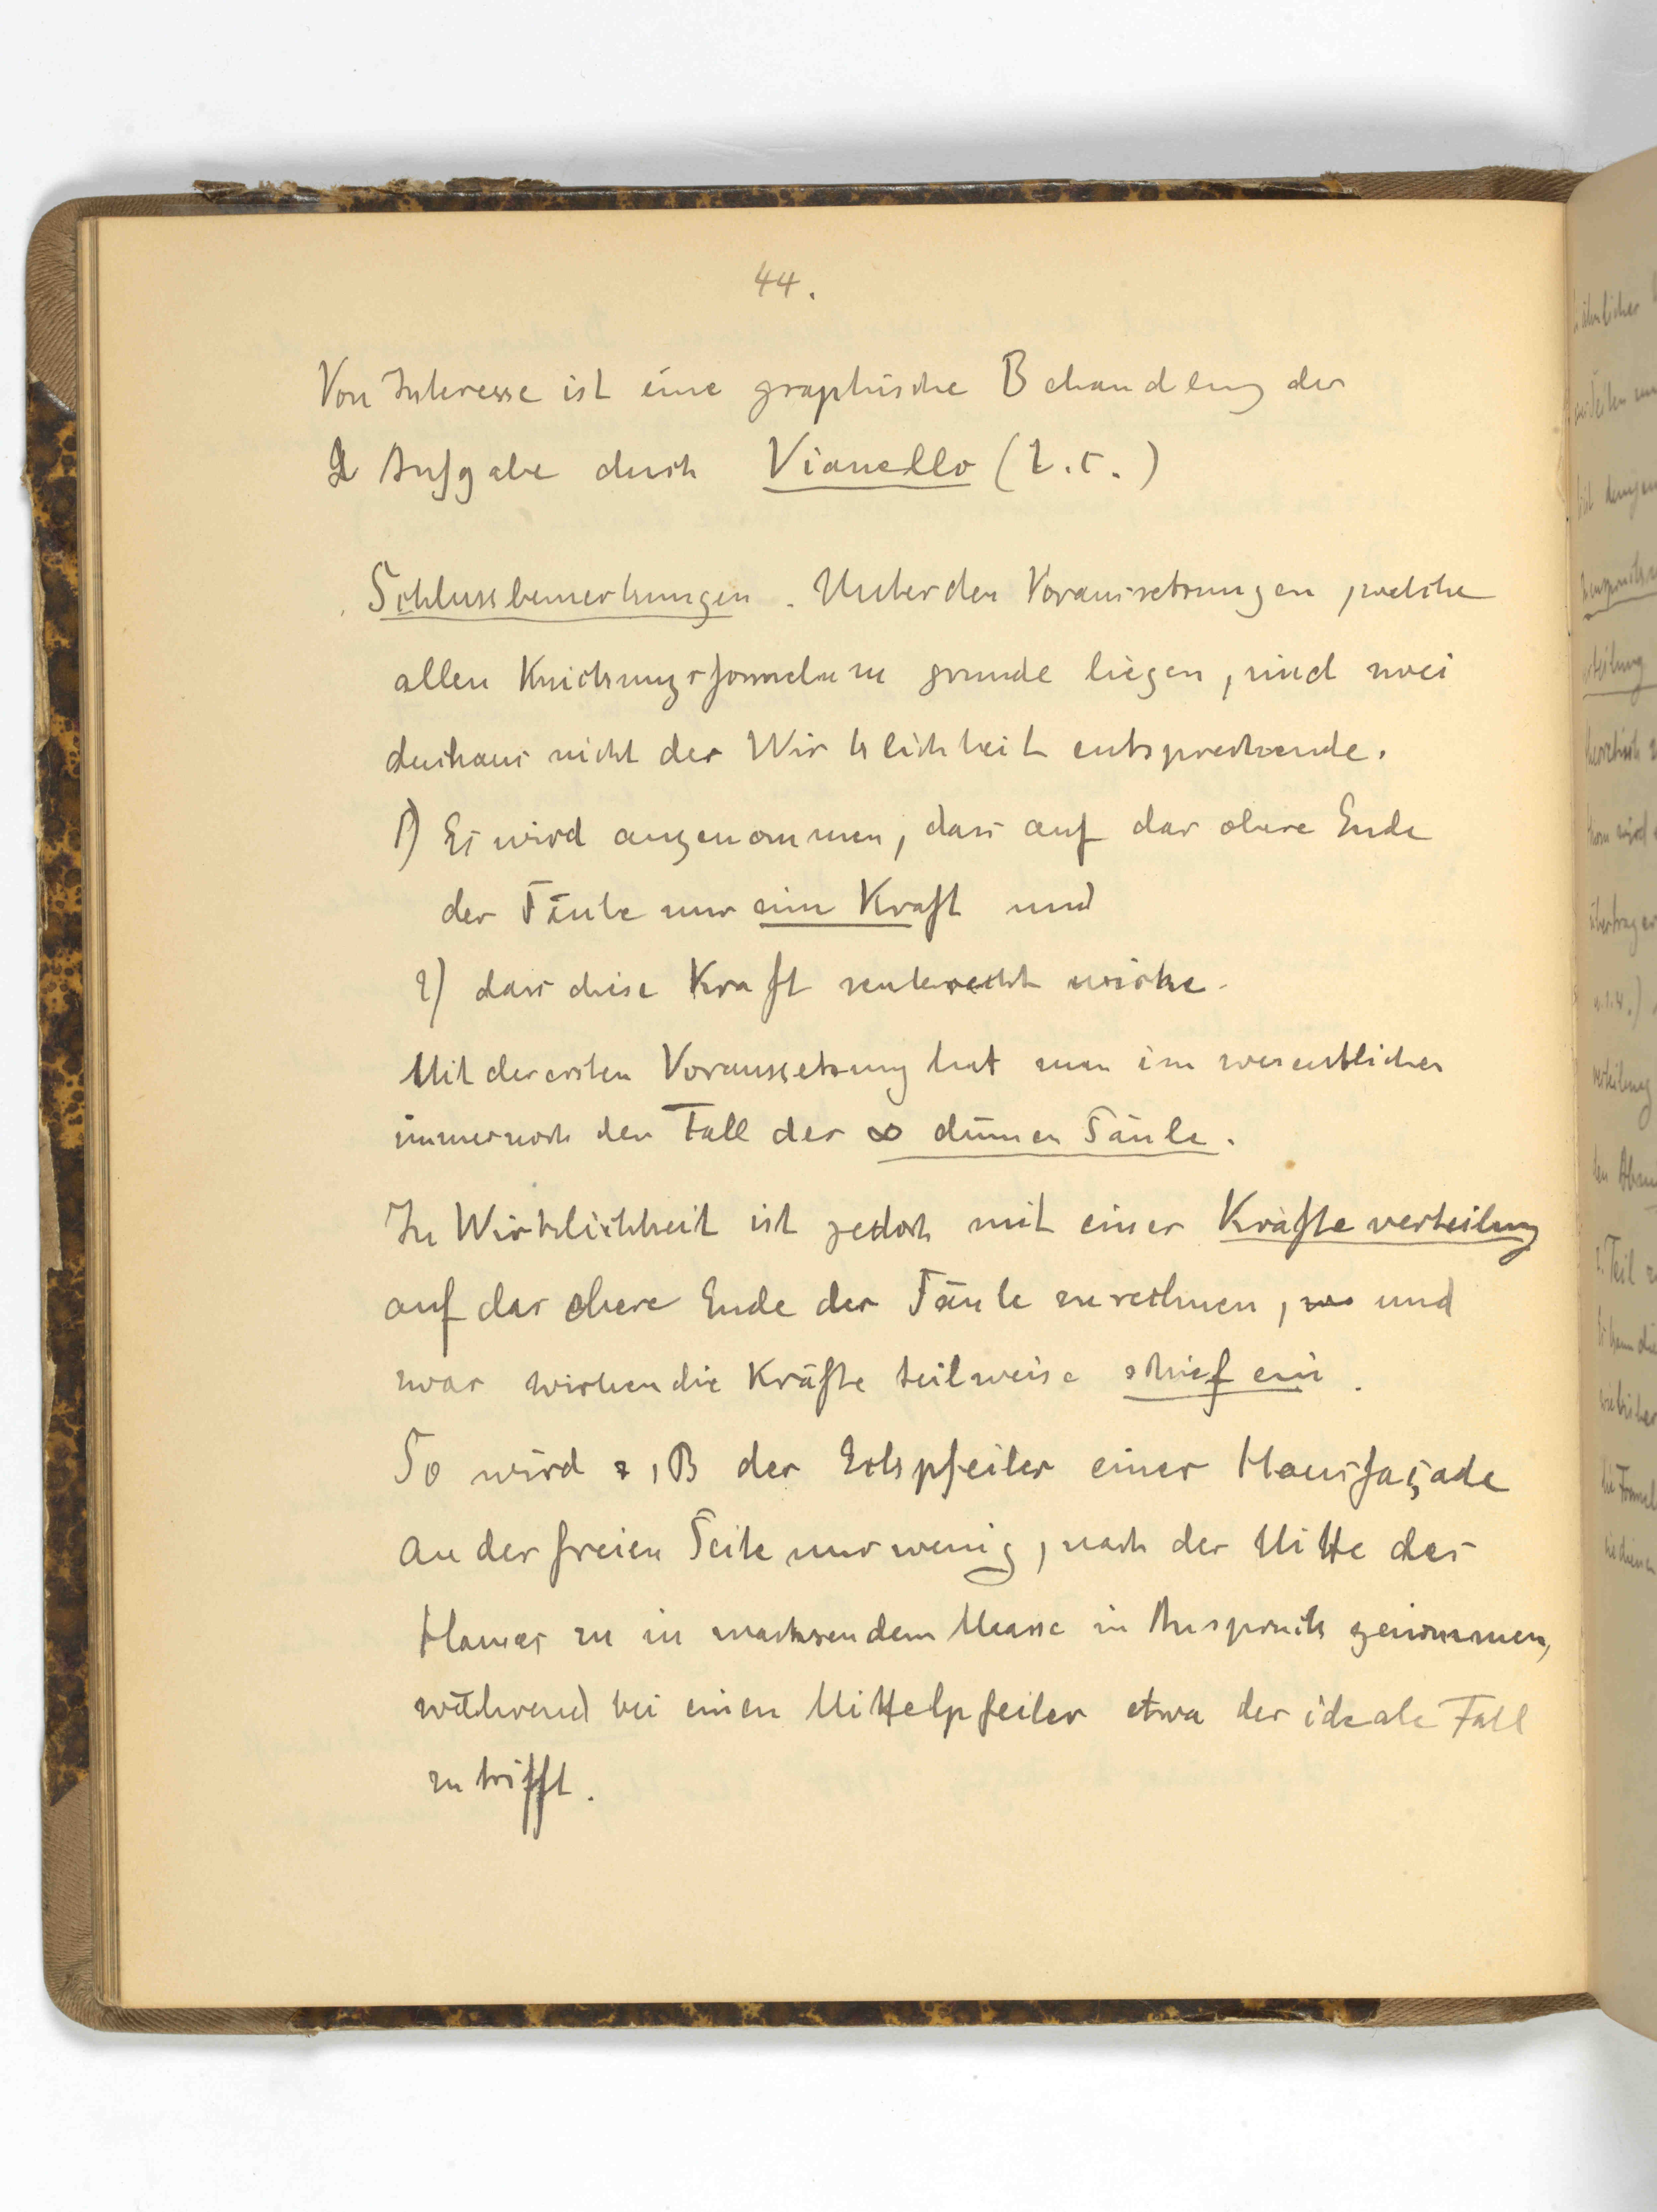 44.
Von Interesse ist eine graphische Behandlung der
Aufgabe durch Vianello (l.c.)
Schlussbemerkungen. Unter den Voraussetzungen, welche
allen Knickungsformeln zu grunde liegen, sind zwei
durchaus nicht der Wirklichkeit entsprechende.
1) Es wird angenommen, dass auf das obere Ende
der Säule nur eine Kraft und
2) dass diese Kraft senkrecht wirke.
Mit der ersten Voraussetzung hat man im wesentlichen
immer noch den Fall der ∞ dünnen Säule.
In Wirklichkeit ist jedoch mit einer Kräfteverteilung
auf das obere Ende der Säule zu rechnen, und
zwar wirken die Kräfte teilweise schief ein.
So wird z.B der Eckpfeiler einer Hausfaçade
an der freien Seite nur wenig, nach der Mitte des
Hauses zu in wachsendem Maasse in Anspruch genommen,
während bei einem Mittelpfeiler etwa der ideale Fall
zutrifft.